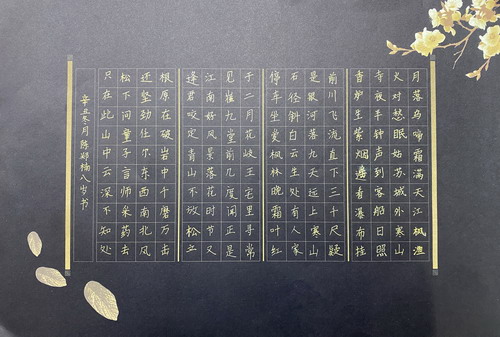 月落乌啼霜满天江枫渔
火对愁眠姑苏城外寒山
寺夜半钟声到客船日照
香炉生紫烟遥看瀑布挂
前川飞流直下三千尺疑
是银河落九天远上寒山
石径斜白云生处有人家
停车坐爱枫林晚霜叶红
于二月花岐王宅里寻常
见崔九堂前几度闻正是
江南好风景落花时节又
逢君咬定青山不放松立
根原在破岩中千磨万击
还坚劲任尔东西南北风
松下问童子言师采药去
只在此山中云深不知处
辛丑冬月陈楠八岁书